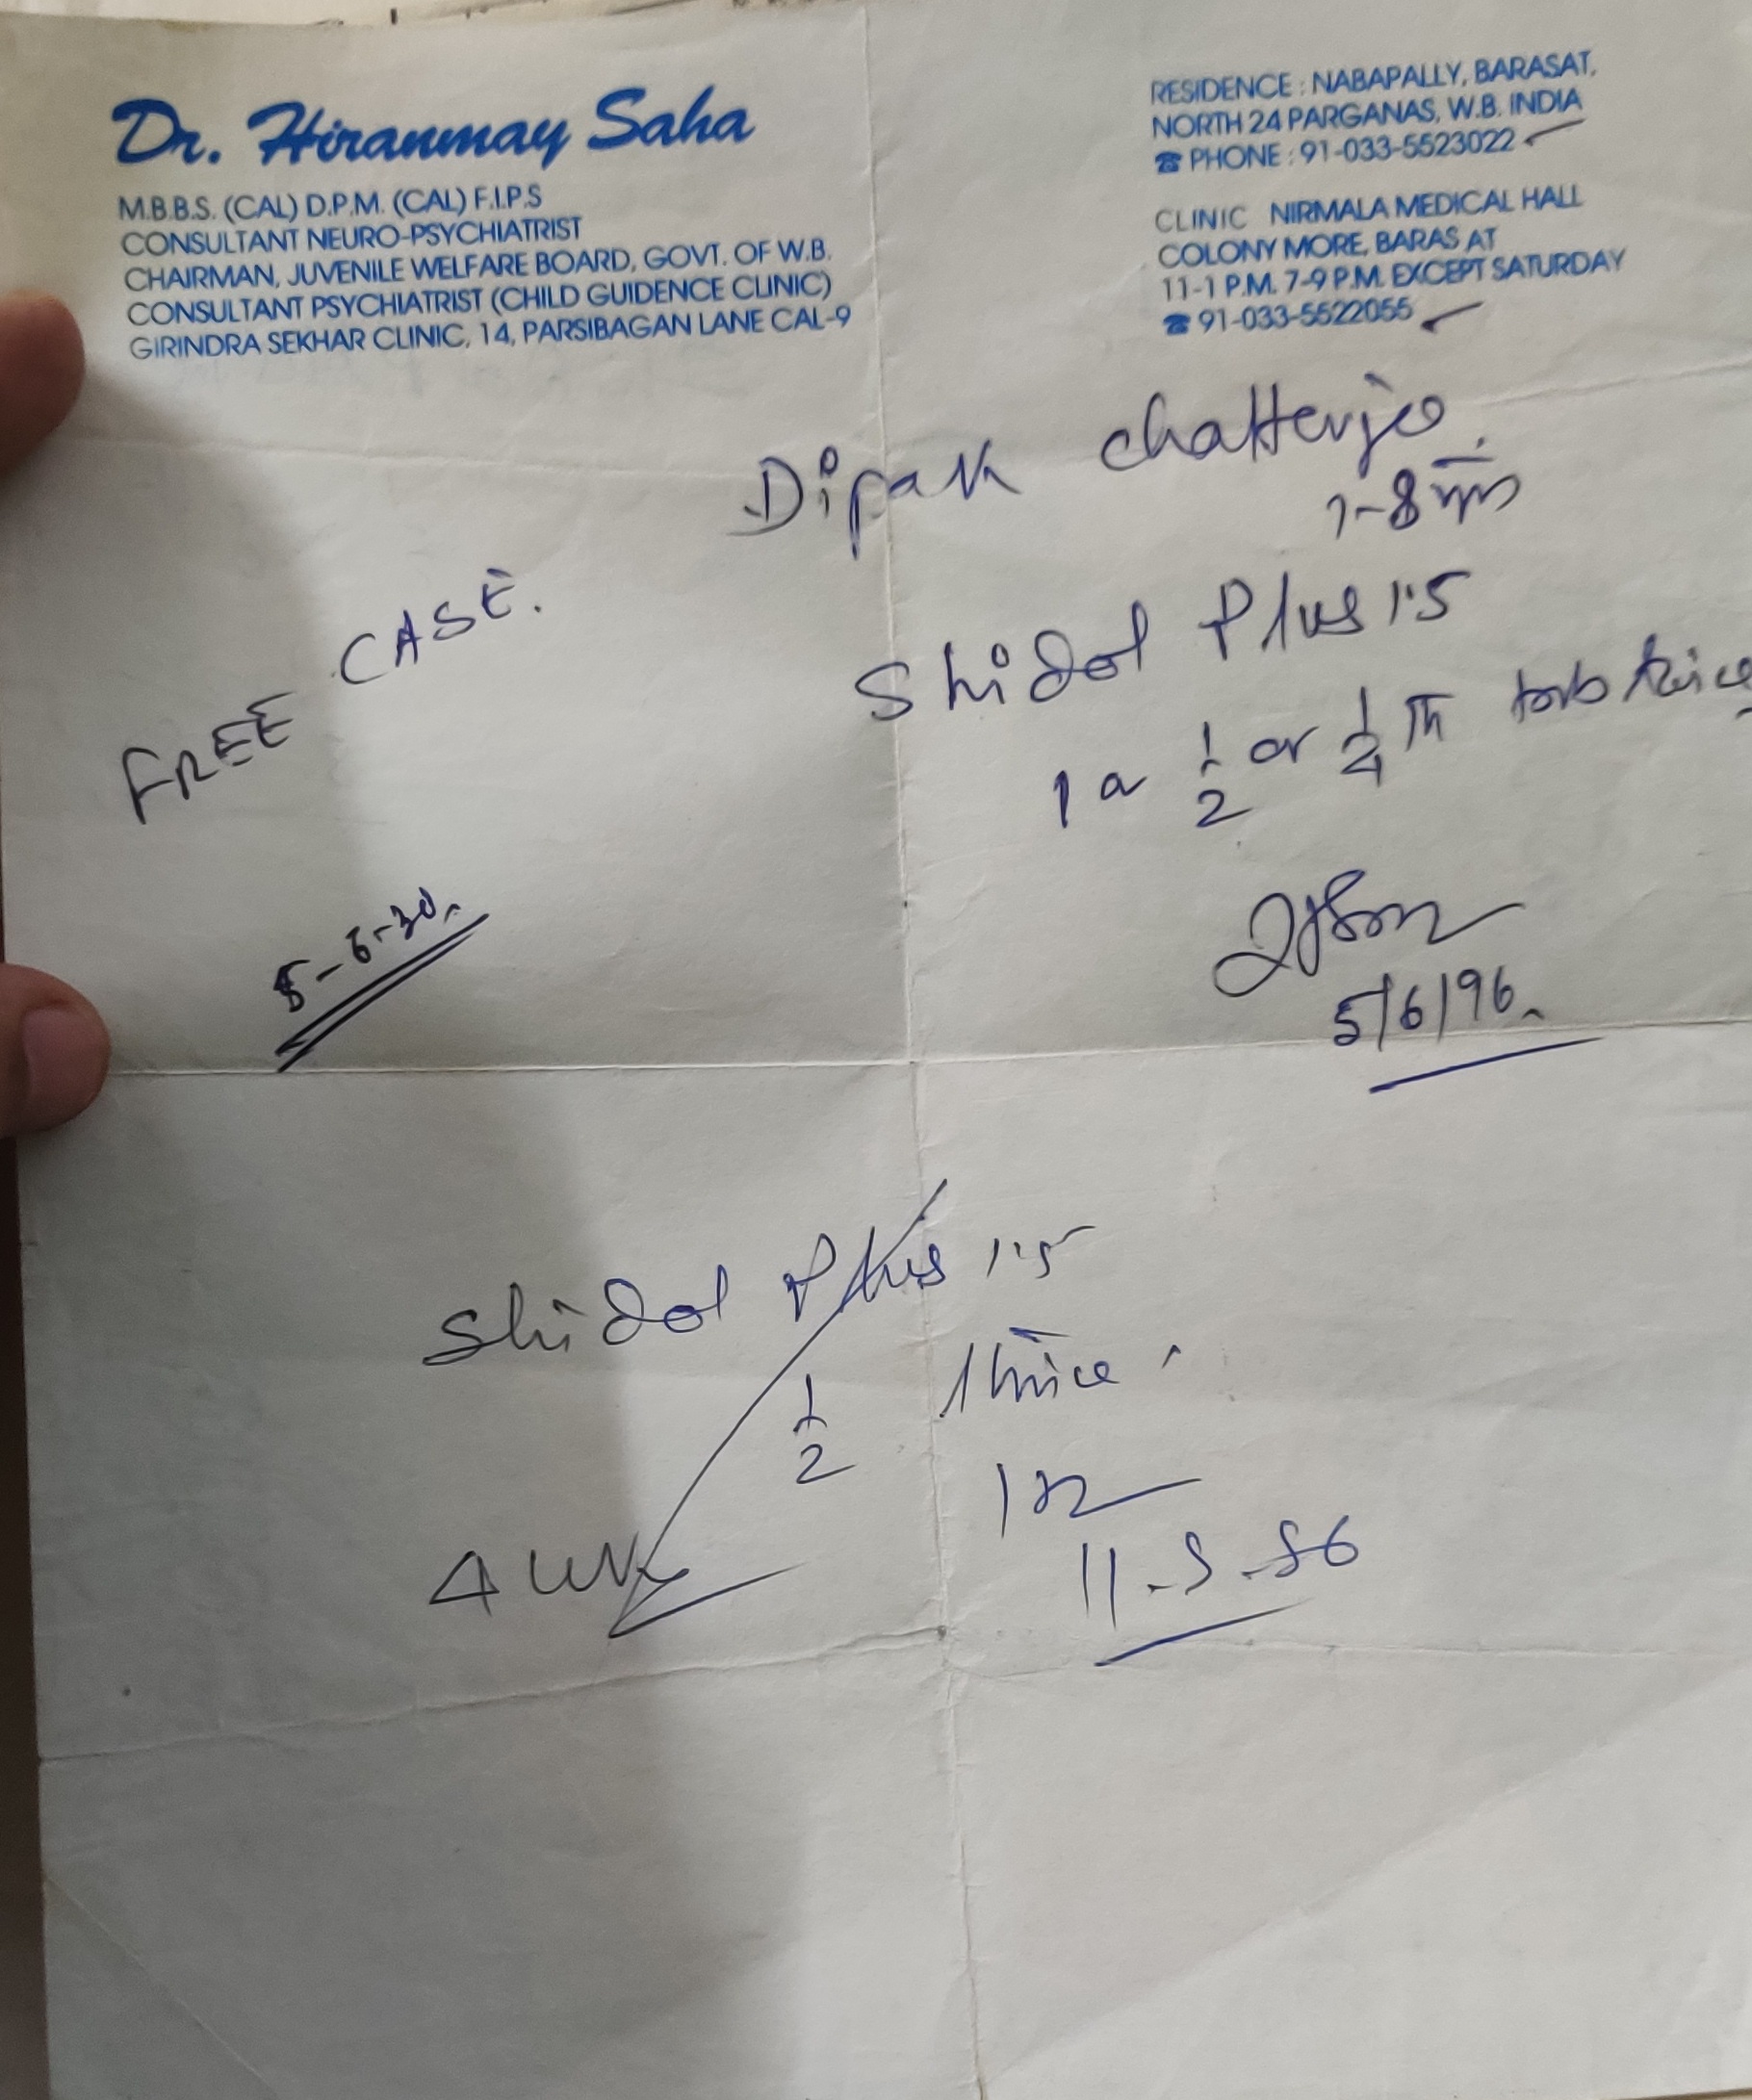 Dr. Hiranmay Saha
M.B.B.S. (CAL) D.P.M. (CAL) F.I.P.S
CONSULTANT NEURO-PSYCHIATRIST
CHAIRMAN, JUVENILE WELFARE BOARD, GOVT. OF W.B.
CONSULTANT PSYCHIATRIST (CHILD GUIDENCE CLINIC)
GIRINDRA SEKHAR CLINIC, 14, PARSIBAGAN LANE CAL-9
RESIDENCE : NABAPALLY, BARASAT,
NORTH 24 PARGANAS, W.B. INDIA
☎ PHONE : 91-033-5523022
CLINIC NIRMALA MEDICAL HALL
COLONY MORE, BARAS AT
11-1 P.M. 7-9 P.M. EXCEPT SATURDAY
☎ 91-033-5522055
Dipak chatterjee
FREE CASE.
Shidol Plus 1.5
1 or 1/2 or 1/4 th tab
5-6-30
5/6/96
Shidol Plus 1.5
1/2 thrice